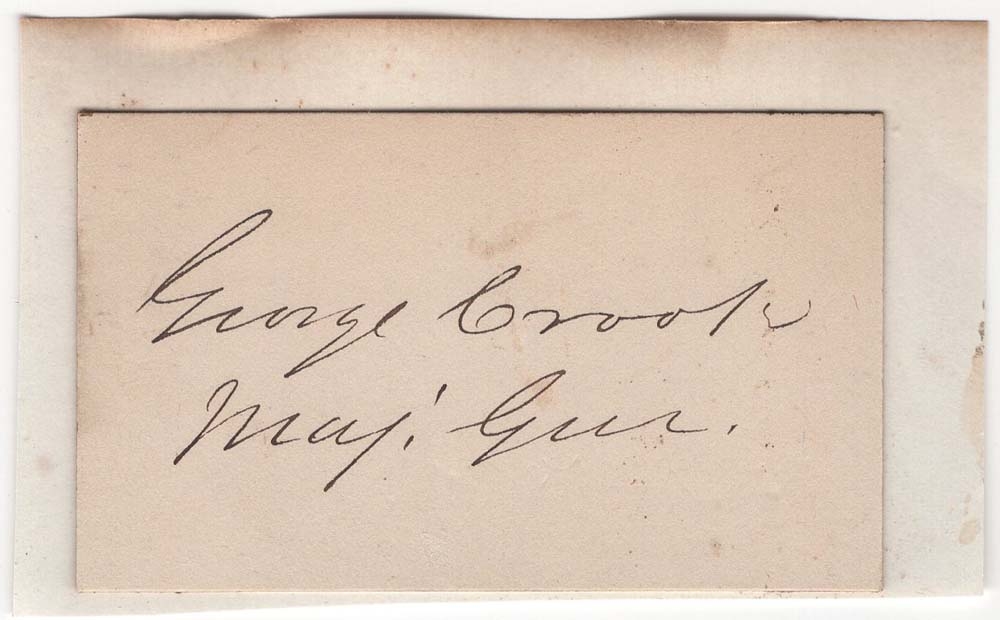 George Crook
Maj. Gen.